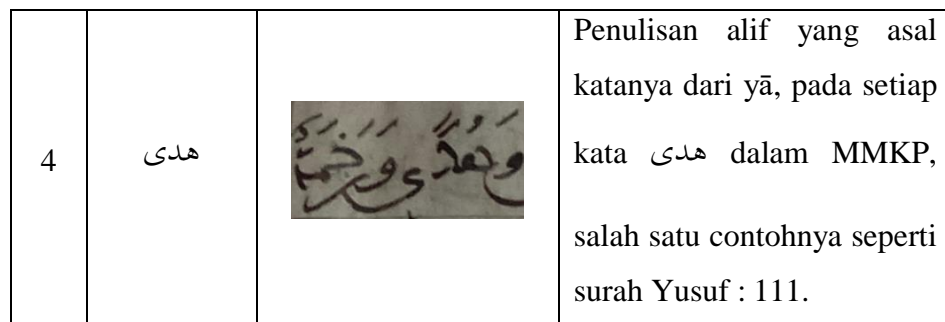 4
هدى
وَهُدًى وَرَحْمَةً
Penulisan alif yang asal
katanya dari yā, pada setiap
kata هدى dalam MMKP,
salah satu contohnya seperti
surah Yusuf : 111.